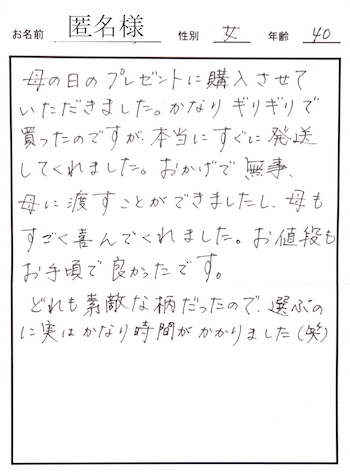 お名前 匿名様 性別 女 年齢 40
母の日のプレゼントに購入させて
いただきました。かなりギリギリで
買ったのですが、本当にすぐに発送
してくれました。おかげで無事、
母に渡すことができましたし、母も
すごく喜んでくれました。お値段も
お手頃で良かったです。
どれも素敵な柄だったので、選ぶの
に実はかなり時間がかかりました(笑)